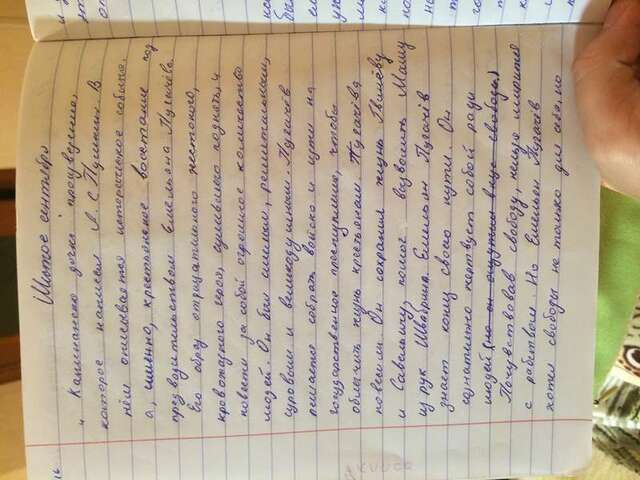 16
Шистое сентября
„ Капинанская дочка" произведение,
которое написал А. С Пушкин. В
нём описывается историческое событие.
а, именно, крестьянское восстание под
предводительством Емельяна Пугачёва.
Его образ отрицательного жестокого,
кровожадного героя, сумевшего поднять, и
повести за собой огромное количество
людей. Он был смелым, решительным,
суровым и великодушным. Пугачёв
решается собрать войско и идти на
государственное преступление, чтобы
облегчить жизнь крестьянам. Пугачёва
повесили. Он сохранил жизнь Гринёву
и Савельичу, помог вызволить Машу
из рук Швабрина. Емельян Пугачёв
знает конец своего пути. Он
сознательно жертвует собой ради
людей (но он ощутил вкус свободы.)
Почувствовав свободу, нельзя мирится
с рабством. Но Емельян Пугачёв
хотел свободы не только для себя, но